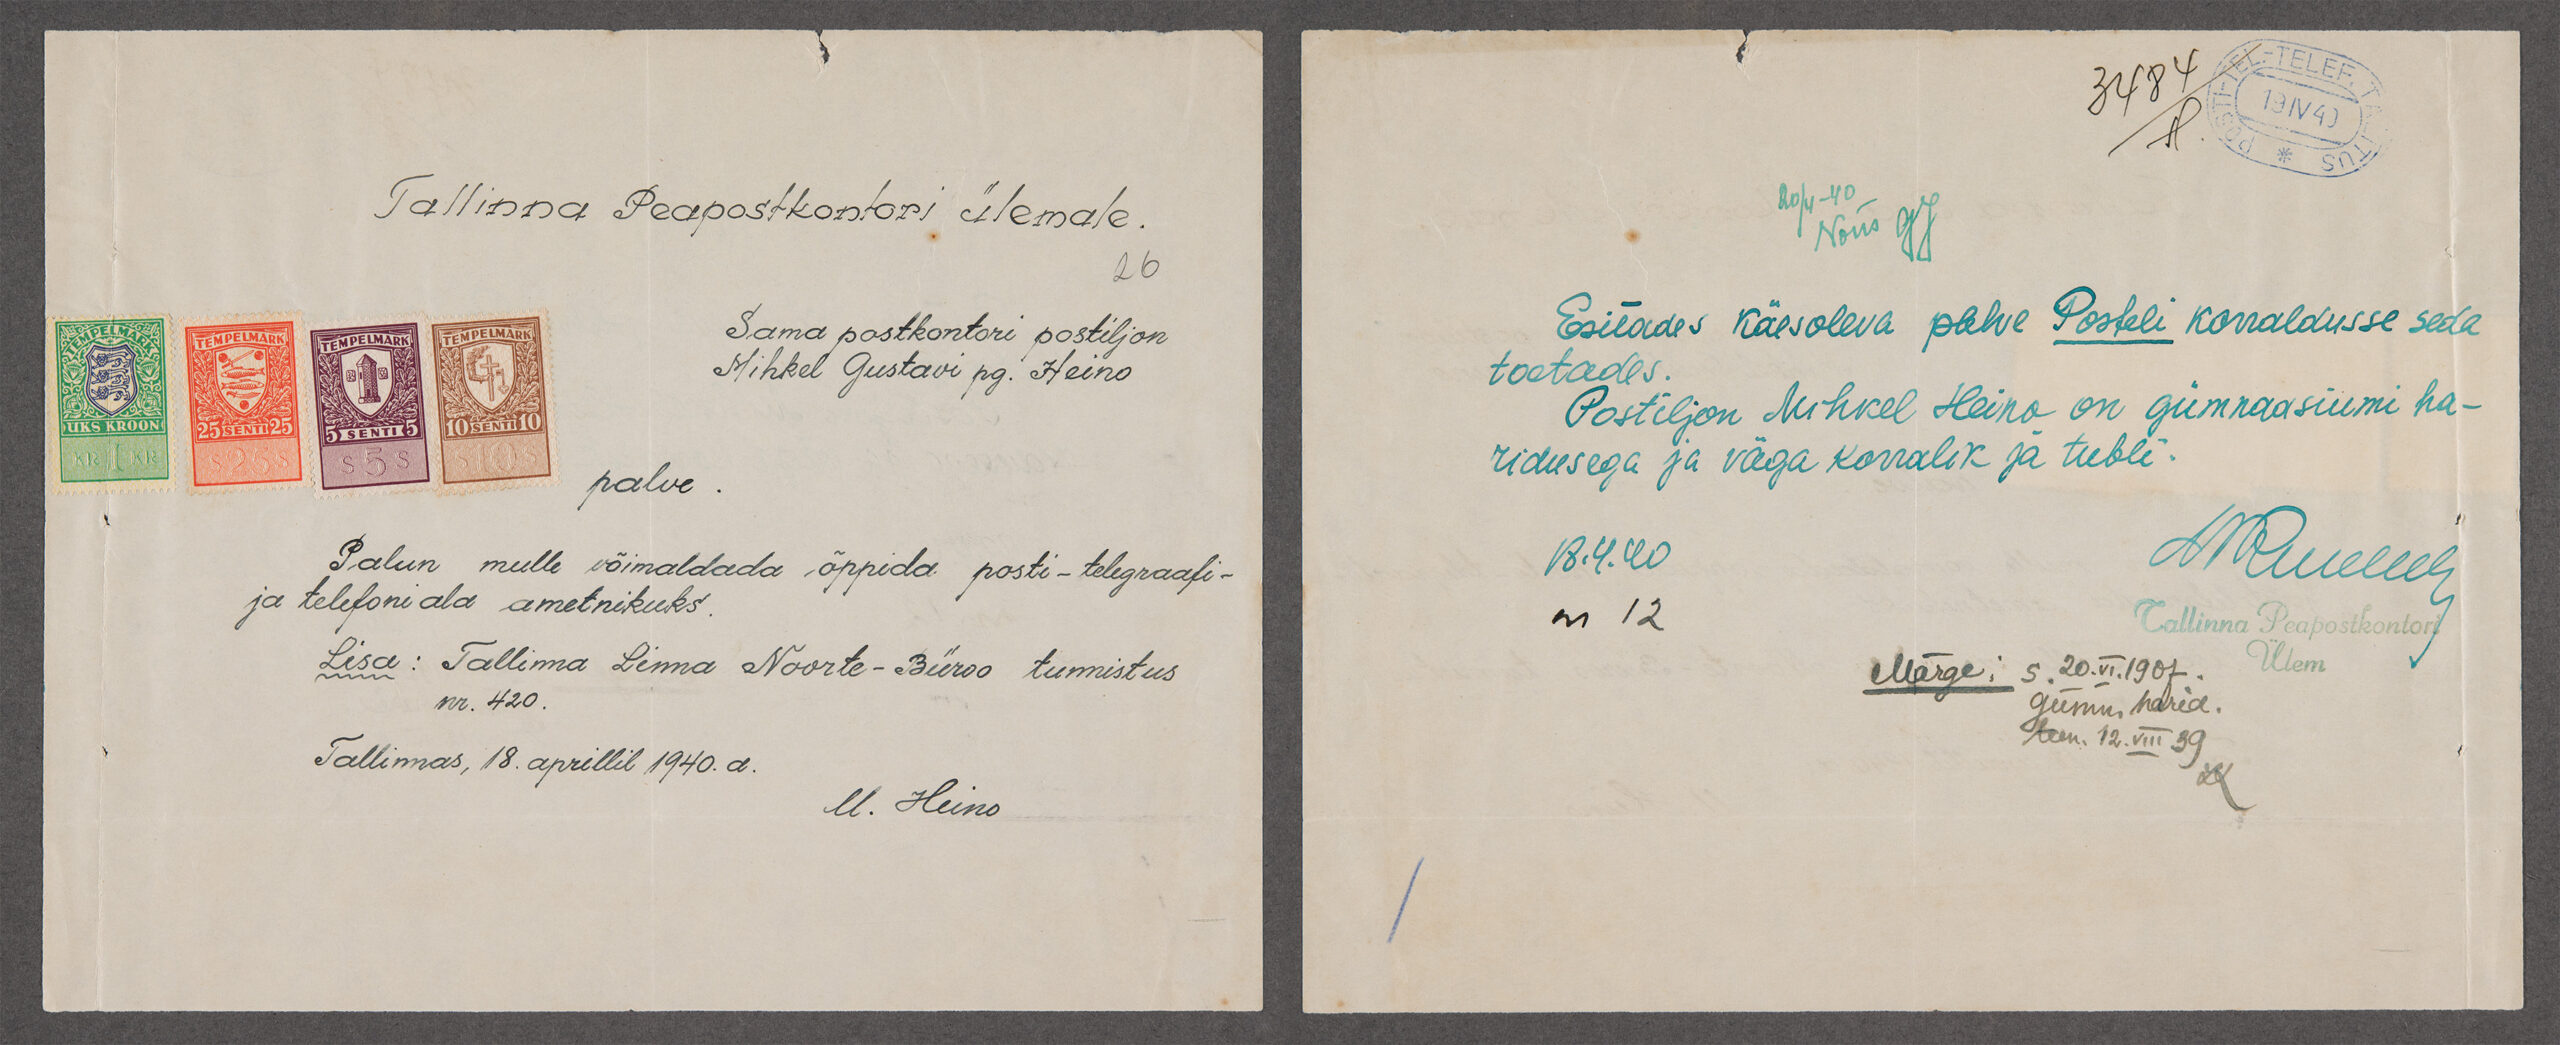 Tallinna Peapostkontori Ülemale.
26
Sama postkontori postiljon
Mihkel Gustavi pg. Heino
TEMPELMARK
ÜKS KROON
KR 1 KR
TEMPELMARK
25 SENTI 25
S 25 S
TEMPELMARK
5 SENTI 5
S 5 S
TEMPELMARK
10 SENTI 10
S 10 S
palve.
Palun mulle võimaldada õppida posti-telegraafi-
ja telefoni ala ametnikuks.
Lisa: Tallinna Linna Noorte-Büroo tunnistus
nr. 420.
Tallinnas, 18. aprillil 1940. a.
M. Heino
3484
POSTI-TEL.-TELEF. TALITUS
19 IV 40
20/4-40
Nõus
Esitades käesoleva palve Posteli korraldusse seda
toetades.
Postiljon Mihkel Heino on gümnaasiumi ha-
ridusega ja väga korralik ja tubli.
18.4.40
nr 12
Tallinna Peapostkontori
Ülem
Märge: s. 20.VI.1907.
gümn. harid.
teen. 12.VIII 39